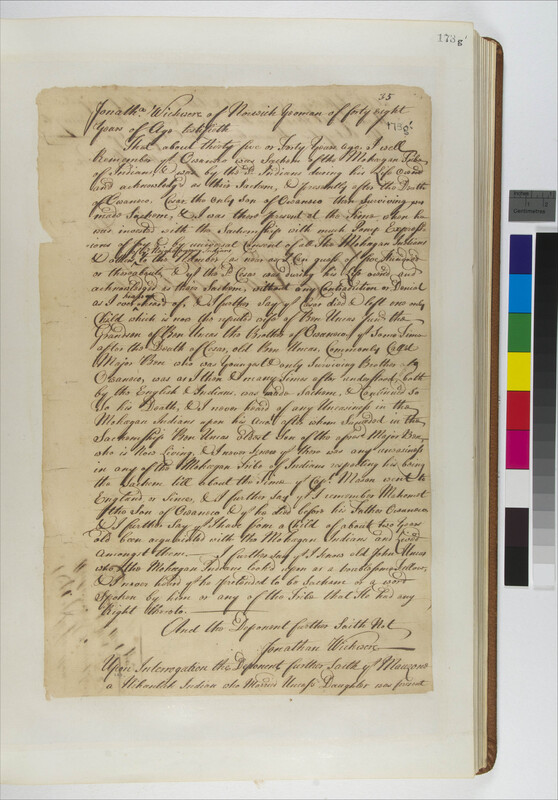 173g'
35
Jonatha Wickwere of Norwich Yeoman of forty eight
Years of Age testifieth
173g'
That about thirty five or forty Years ago I well
Remember yt Owaneco was Sachem of the Mohegan Tribe
of Indians & was by the sd Indians during his Life owned
and acknowledgd as their Sachem, & presently after the Death
of Owaneco, Cesar the Only Son of Owaneco then Surviving was
made Sachem, & I was there present at the Time when he
was invested with the Sachemship with much Pomp Express
ions of Joy & by universal Consent of all the Mohegan Indians
& to the Number as near as I can guess of five Hundred
or thereabouts & yt the sd Cesar was during his Life owned and
acknowledged as their Sachem, without any Contradiction or Denial
as I ever heard of. & I further Say yt Cesar died & left one only
Child which is now the reputed wife of Ben Uncas the
Grandson of Ben Uncas the Brother of Owaneco yt Some Time
after the Death of Cesar, old Ben Uncas, Commonly Called
Major Ben who was Youngest & only Surviving Brother of
Owaneco, was as I then & many Times after understood, both
by the English & Indians, was made Sachem, & Continued so
to his Death, & I never heard of any Uneasiness in the
Mohegan Indians upon his Acct after whom Succeeded in the
Sachemship Ben Uncas Eldest Son of the aforesd Major Ben,
who is Now Living, & I never knew yt there was any uneasiness
in any of the Mohegan Tribe of Indians respecting his being
the Sachem till about the Time yt Capt Mason went to
England or Since, & I further Say yt I remember Mahomet
the Son of Owaneco & yt he died before his Father Owaneco
& I further Say yt I have from a Child of about two Years
old been acquainted with the Mohegan Indians and lived
amongst them. I further Say yt I knew old John Uncas
who the Mohegan Indians looked upon as a
& I never heard yt he pretended to be Sachem or a word
Spoken by him or any of the Tribe that He had any
Right thereto.
And the Deponent further Saith Not
Jonathan Wickwere
Upon Interrogation the Deponent further Saith yt
a Nihantick Indian who Married Uncas's Daughter was present